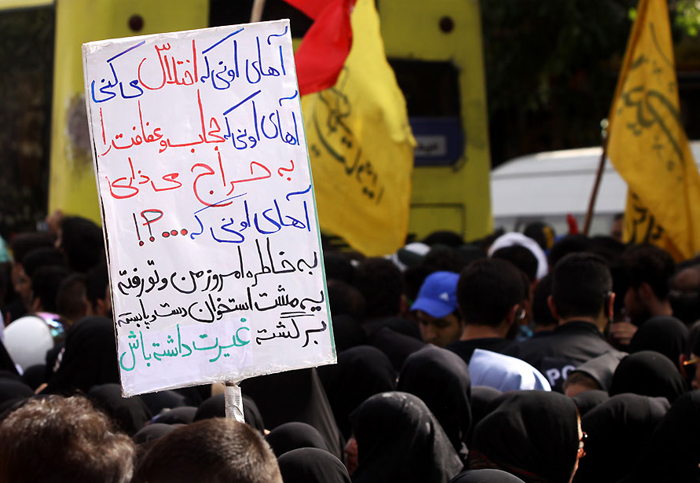 آهای اونی که اختلاس می کنی
آهای اونی که حجاب و عفافت را
به حراج می ذاری
آهای اونی که ...؟!!
به خاطره امروز من و تو رفته
یه مشت استخوان دست و پا بسته
برگشته غیرت داشته باش
PO